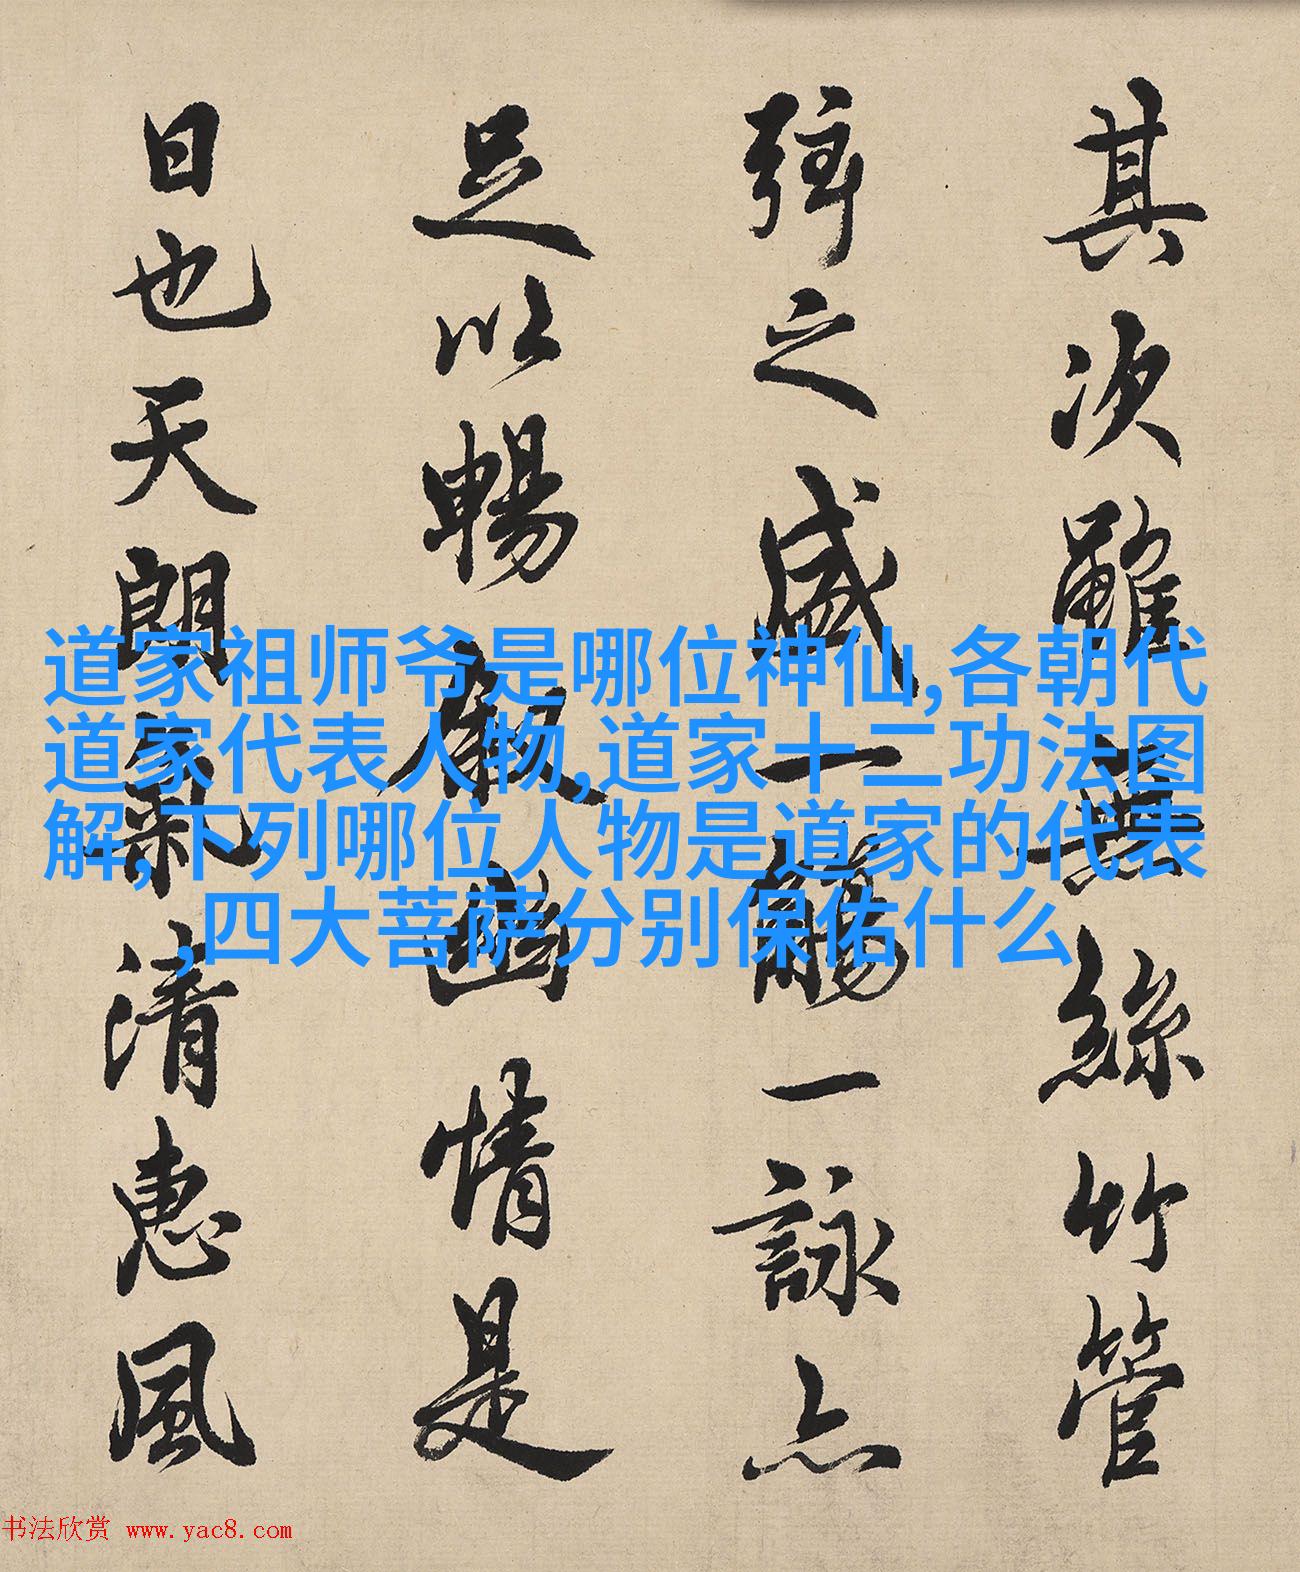 其次雖無絲竹管
弦之盛一觴一詠亦
足以暢敘幽情是
日也天朗氣清惠風
道家祖师爷是哪位神仙,各朝代
道家代表人物,道家十二功法图
解,下列哪位人物是道家的代表
,四大菩萨分别保佑什么
书法欣赏 www.yac8.com